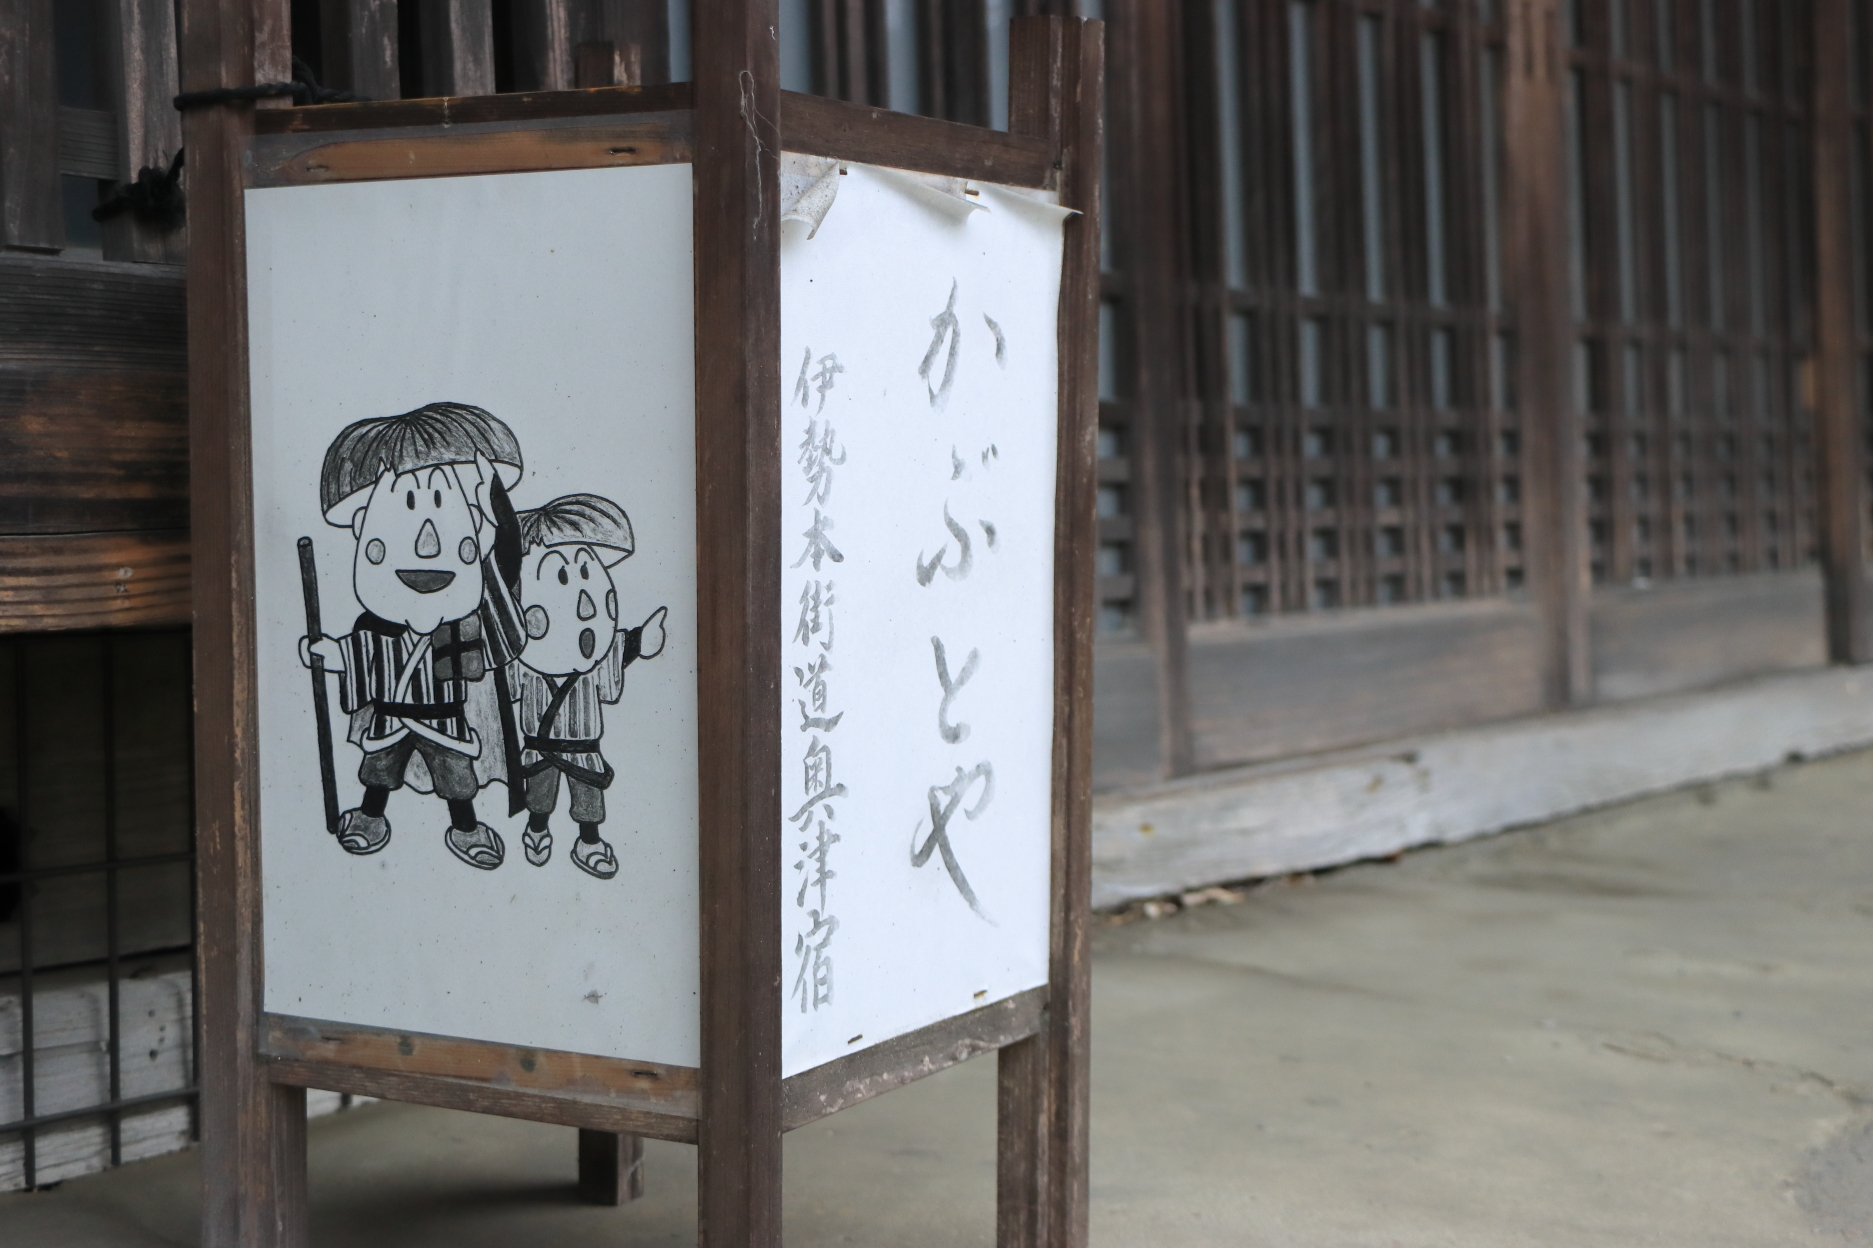 かぶとや
伊勢本街道奥津宿